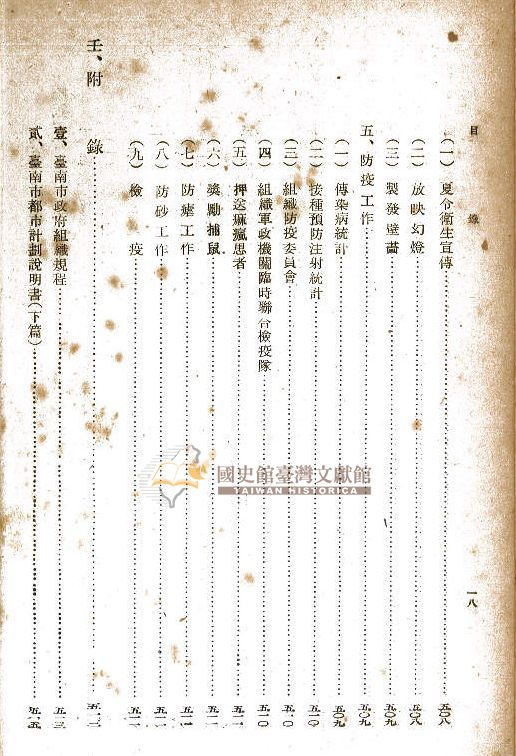 目錄
一八
（一）夏令衛生宣傳……五〇八
（二）放映幻燈……五〇八
（三）製發壁畵……五〇九
五、防疫工作……五〇九
（一）傳染病統計……五〇九
（二）接種預防注射統計……五一〇
（三）組織防疫委員會……五一〇
（四）組織軍政機關臨時聯合檢疫隊……五一〇
（五）押送痳瘋患者……五一一
（六）獎勵捕鼠……五一一
（七）防瘧工作……五一一
（八）防砂工作……五一一
（九）檢疫……五一一
壬、附錄……五一三
壹、臺南市政府組織規程……五一三
貳、臺南市都市計劃說明書（下篇）……五六五
國史館臺灣文獻館
TAIWAN HISTORICA